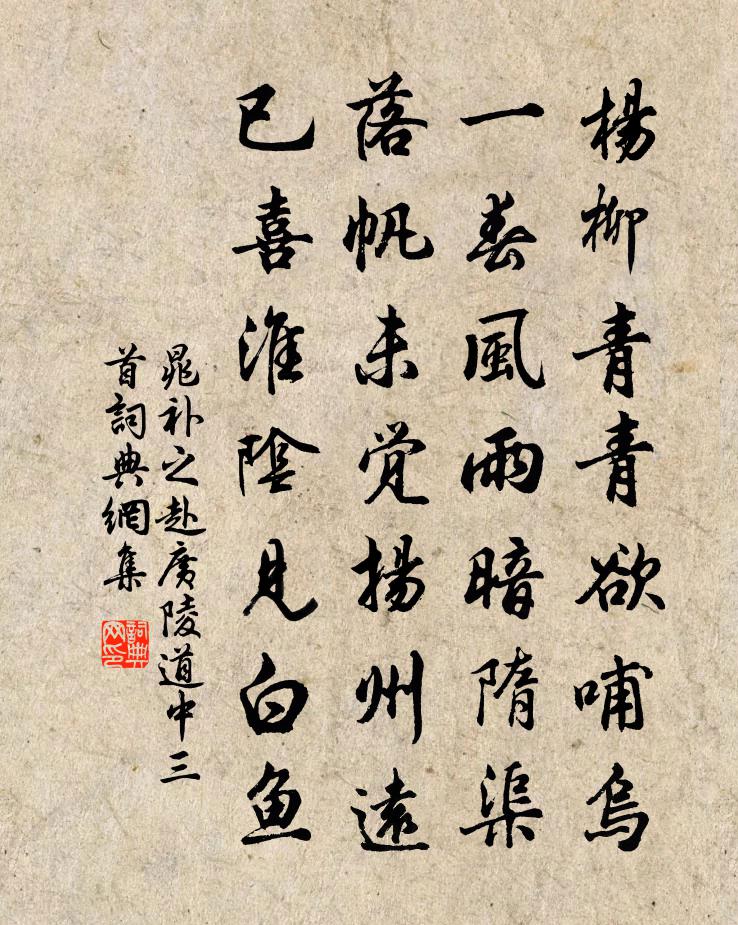 楊柳青青欲哺烏
一春風雨暗隋渠
落帆未觉揚州遠
已喜淮陰見白鱼
晁补之赴廣陵道中三
首詞典網集
詞典
网印